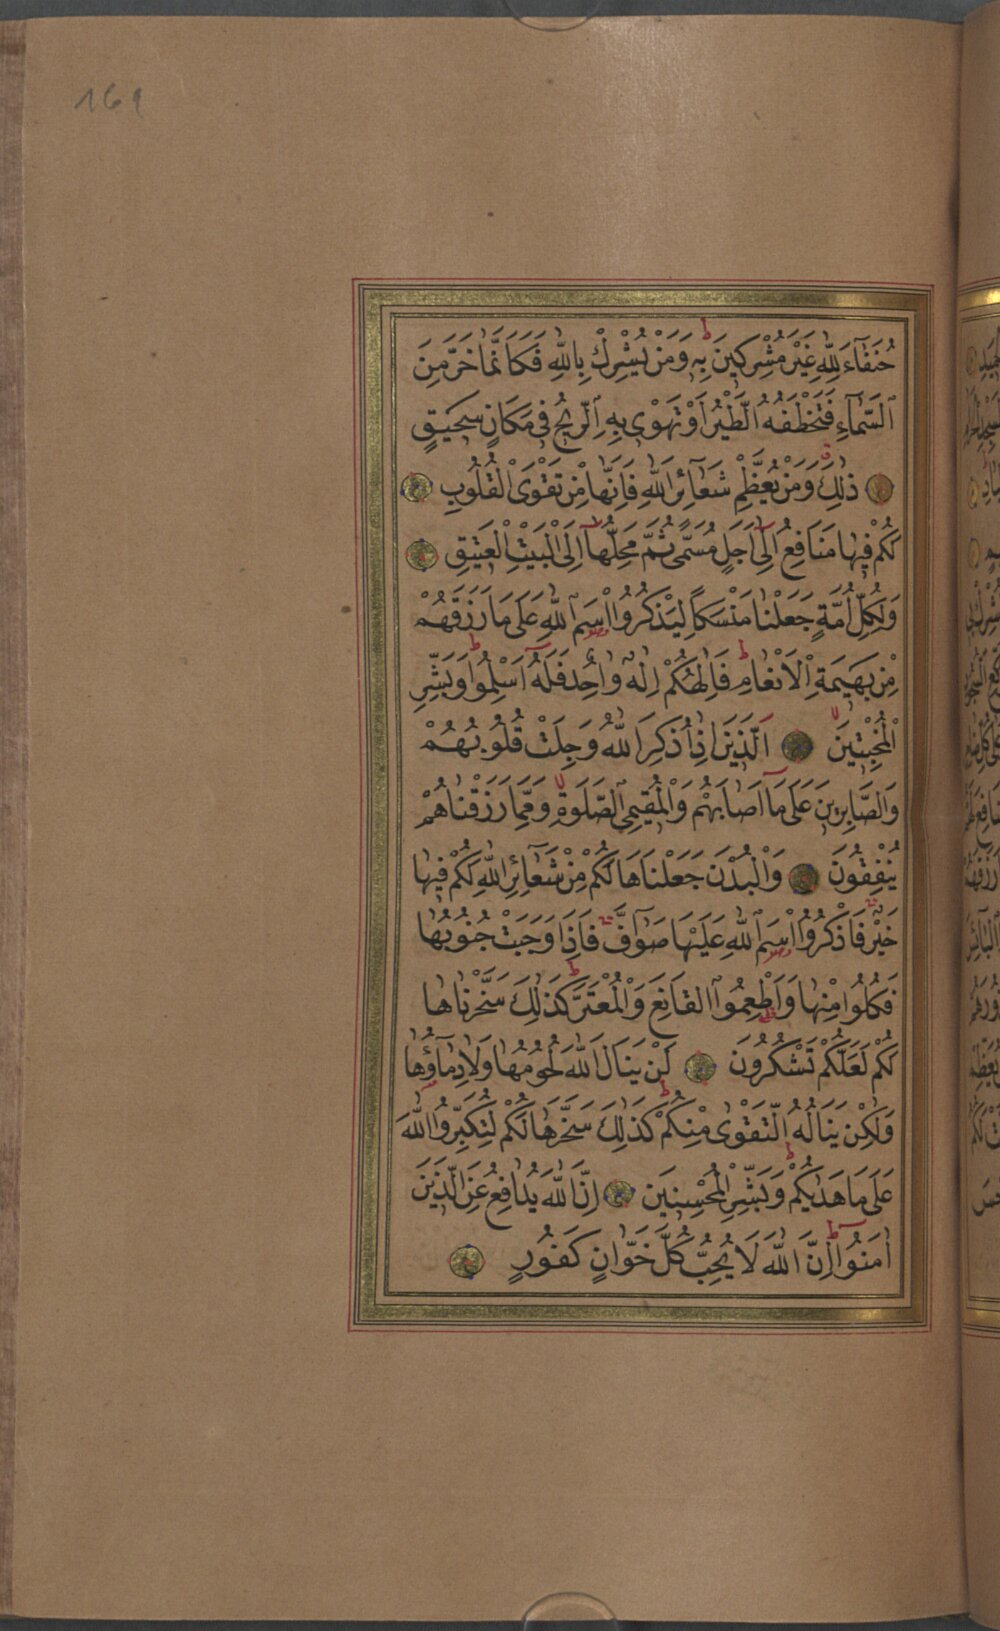 169
حُنَفَآءَ لِلّٰهِ غَيْرَ مُشْرِكِينَ بِهِ وَمَنْ يُشْرِكْ بِاللّٰهِ فَكَاَنَّمَا خَرَّ مِنَ
السَّمَآءِ فَتَخْطَفُهُ الطَّيْرُ اَوْ تَهْوِى بِهِ الرِّيحُ فِى مَكَانٍ سَحِيقٍ
ذٰلِكَ وَمَنْ يُعَظِّمْ شَعَآئِرَ اللّٰهِ فَاِنَّهَا مِنْ تَقْوَى الْقُلُوبِ
لَكُمْ فِيهَا مَنَافِعُ اِلٰٓى اَجَلٍ مُسَمًّى ثُمَّ مَحِلُّهَآ اِلَى الْبَيْتِ الْعَتِيقِ
وَلِكُلِّ اُمَّةٍ جَعَلْنَا مَنْسَكًا لِيَذْكُرُوا اسْمَ اللّٰهِ عَلَى مَا رَزَقَهُمْ
مِنْ بَهِيمَةِ الْاَنْعَامِ فَاِلٰهُكُمْ اِلٰهٌ وَاحِدٌ فَلَهُٓ اَسْلِمُوا وَبَشِّرِ
الْمُخْبِتِينَ اَلَّذِينَ اِذَا ذُكِرَ اللّٰهُ وَجِلَتْ قُلُوبُهُمْ
وَالصَّابِرِينَ عَلَى مَآ اَصَابَهُمْ وَالْمُقِيمِى الصَّلٰوةِ وَمِمَّا رَزَقْنَاهُمْ
يُنْفِقُونَ وَالْبُدْنَ جَعَلْنَاهَا لَكُمْ مِنْ شَعَآئِرِ اللّٰهِ لَكُمْ فِيهَا
خَيْرٌ فَاذْكُرُوا اسْمَ اللّٰهِ عَلَيْهَا صَوَآفَّ فَاِذَا وَجَبَتْ جُنُوبُهَا
فَكُلُوا مِنْهَا وَاَطْعِمُوا الْقَانِعَ وَالْمُعْتَرَّ كَذٰلِكَ سَخَّرْنَاهَا
لَكُمْ لَعَلَّكُمْ تَشْكُرُونَ لَنْ يَنَالَ اللّٰهَ لُحُومُهَا وَلَا دِمَآؤُهَا
وَلٰكِنْ يَنَالُهُ التَّقْوٰى مِنْكُمْ كَذٰلِكَ سَخَّرَهَا لَكُمْ لِتُكَبِّرُوا اللّٰهَ
عَلَى مَا هَدٰيكُمْ وَبَشِّرِ الْمُحْسِنِينَ اِنَّ اللّٰهَ يُدَافِعُ عَنِ الَّذِينَ
اٰمَنُوا اِنَّ اللّٰهَ لَا يُحِبُّ كُلَّ خَوَّانٍ كَفُورٍ